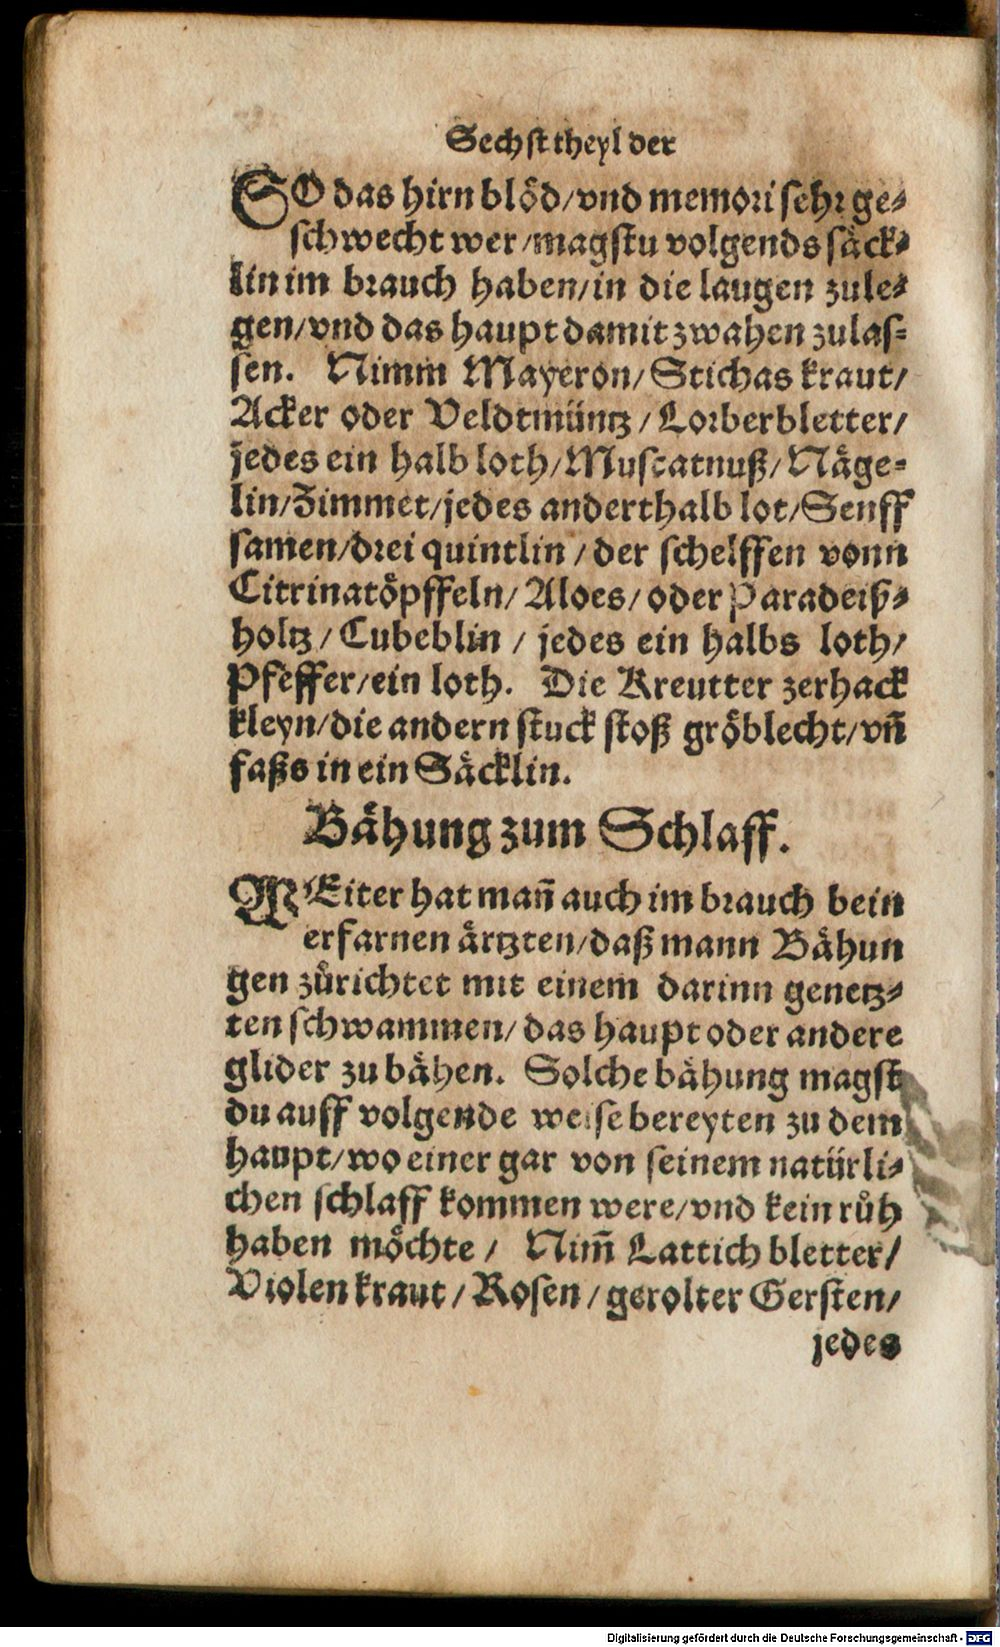 Sechst theyl der
SO das hirn blöd/vnd memori sehr ge-
schwecht wer/magstu volgends säck-
lin im brauch haben/in die laugen zule-
gen/vnd das haupt damit zwahen zulas-
sen. Nimm Mayeron/Stichas kraut/
Acker oder Veldtmüntz/Lorberbletter/
jedes ein halb loth/Muscatnuß/Näge-
lin/Zimmet/jedes anderthalb lot/Senff
samen/drei quintlin/der schelffen vonn
Citrinatöpffeln/Aloes/oder Paradeiß-
holtz/Cubeblin/jedes ein halbs loth/
Pfeffer/ein loth. Die Kreutter zerhack
kleyn/die andern stuck stoß gröblecht/vñ
faßs in ein Säcklin.
Bähung zum Schlaff.
WEiter hat mañ auch im brauch bein
erfarnen ärtzten/daß mann Bähun
gen zůrichtet mit einem darinn genetz-
ten schwammen/das haupt oder andere
glider zu bähen. Solche bähung magst
du auff volgende weise bereyten zu dem
haupt/wo einer gar von seinem natürli-
chen schlaff kommen were/vnd kein růh
haben möchte/ Nim̃ Lattich bletter/
Violen kraut/Rosen/gerolter Gersten/
jedes
Digitalisierung gefördert durch die Deutsche Forschungsgemeinschaft - DFG